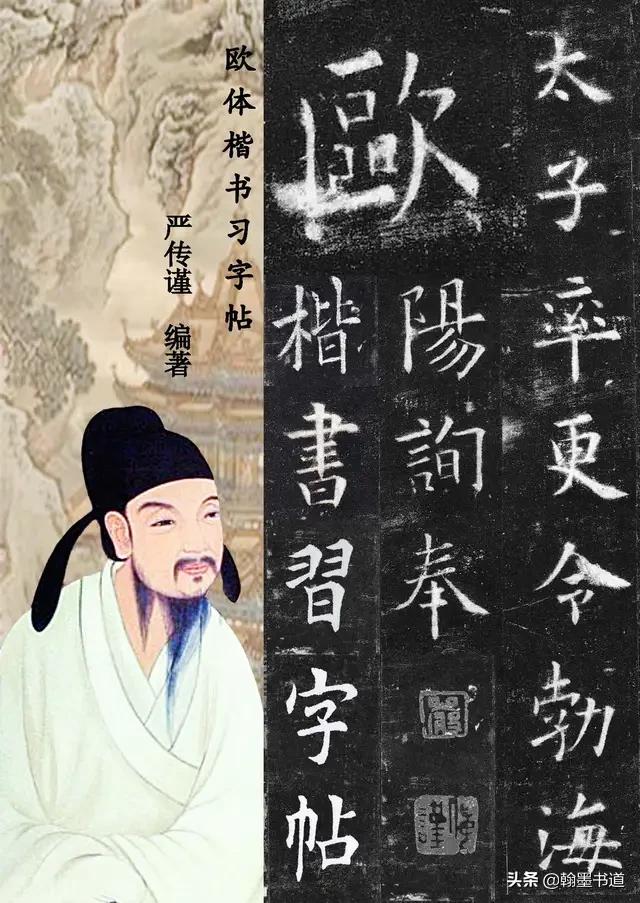 太子率更令勃海
歐陽詢奉
嚴
傳謹
楷書習字帖
欧体楷书习字帖
严传谨 编著
头条 @翰墨书道